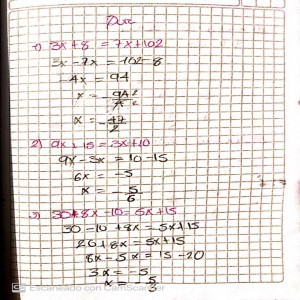 1) 3x + 8 = 7x + 102
3x - 7x = 102 - 8
-4x = 94
x = - 94/4
x = - 47/2
2) 9x + 15 = 3x + 10
9x - 3x = 10 - 15
6x = -5
x = - 5/6
3) 30 + 8x - 10 = 5x + 15
30 - 10 + 8x = 5x + 15
20 + 8x = 5x + 15
8x - 5x = 15 - 20
3x = -5
x = - 5/3
Escaneado con CamScanner